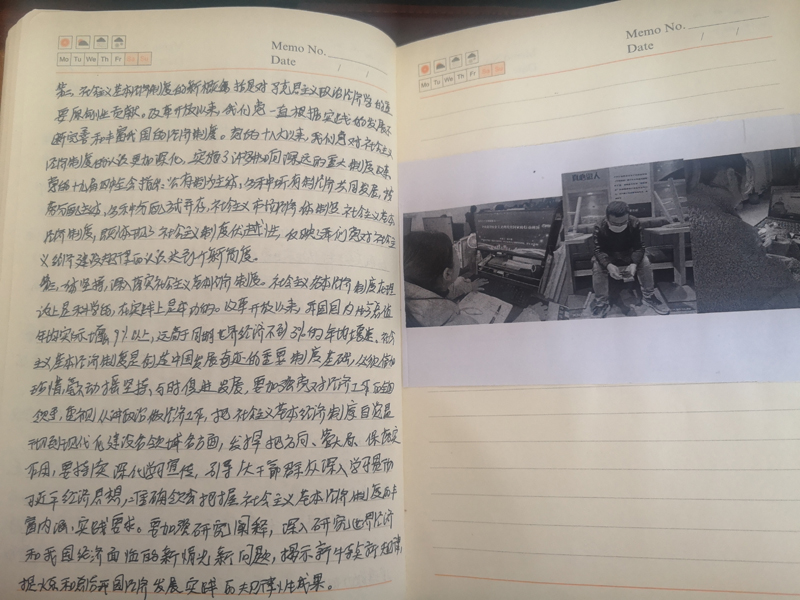 Memo No.
Date / /
Mo Tu We Th Fr Sa Su
第二,社会主义基本经济制度的新概括是对马克思主义政治经济学的重
要原创性贡献。改革开放以来,我们党一直根据实践的发展不
断完善和丰富我国的经济制度。党的十八大以来,我们党对社会主义
经济制度的认识更加深化,实施了许多影响深远的重大制度改革
党的十九届四中全会指出:公有制为主体,多种所有制经济共同发展,按
劳分配为主体,多种分配方式并存,社会主义市场经济体制是社会主义基本
经济制度,既体现了社会主义制度优越性,
义经济建设规律的认识达到了新高度。
第三,坚持,深入落实社会主义基本经济制度。社会主义基本经济制度在理
论上是科学的,在实践上是成功的。改革开放以来,我国国内生产总值
年均实际增长9%以上,远高于同期世界经济不到3%的年均增速。社会
主义基本经济制度是创造中国发展奇迹的重要制度基础,
毫不动摇坚持、与时俱进发展,要加强党对经济工作的
领导,重视从讲政治做经济工作,把社会主义基本经济制度自觉
现代化建设各领域各方面,发挥把方向、管大局、保落实
作用,要持续深化学习宣传,引导广大干部群众深入学习贯彻
习近平经济思想,准确领会把握社会主义基本经济制度的丰
富内涵,实践要求。要加强研究阐释,深入研究世界经济
和我国经济面临的新情况新问题,揭示新特点新规律,
提炼和总结我国经济发展实践的规律性成果。
Memo No.
Date / /
Mo Tu We Th Fr Sa Su